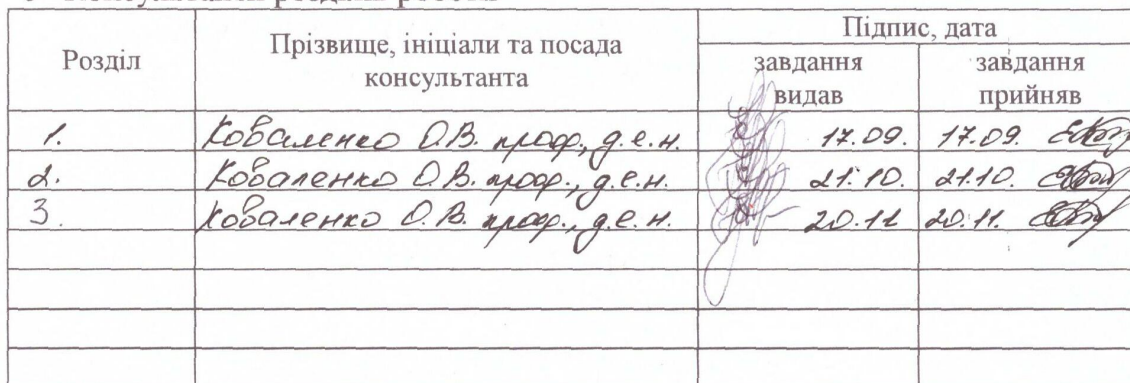 Розділ Прізвище, ініціали та посада консультанта Підпис, дата
завдання видав завдання прийняв
1. Коваленко О.В. проф., д.е.н. 17.09. 17.09.
2. Коваленко О.В. проф., д.е.н. 21.10. 21.10.
3. Коваленко О.В. проф., д.е.н. 20.11 20.11.